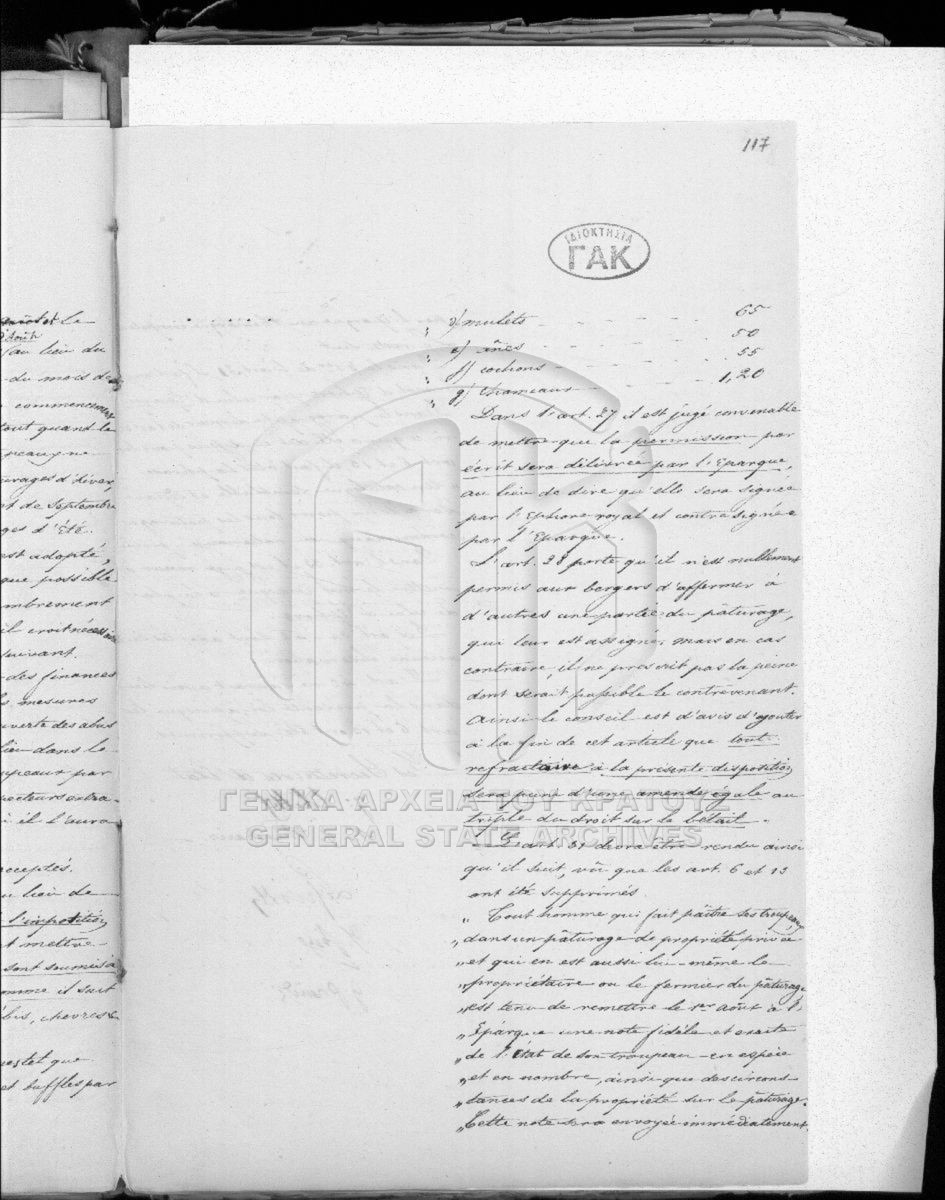 117
ΙΔΙΟΚΤΗΣΙΑ
ΓΑΚ
le
au lieu du
du mois de
commencer
tout quand le
urages d'hiver,
t de Septembre
ges d'Été.
est adopté,
que possible
il croit nécessaire
suivant.
des finances
s mesures
uverte des abus
lieu dans le
upeaux par
pecteurs extra-
i il l'aura
cceptés.
u lieu de
l'imposition
t mettre
sont soumis à
omme il suit
bis, chèvres &
et que
et buffles par
d/ mulets 65
e/ ânes 50
f/ cochons 55
g/ Chameaux 1,20
Dans l'art. 27 il est jugé convenable
de mettre que la permission par
écrit sera délivrée par l'Eparque,
au lieu de dire qu'elle sera signée
par l'Ephore royal et contresignée
par l'Eparque.
L'art. 28 porte qu'il n'est nullement
permis aux bergers d'affermer à
d'autres une partie du pâturage,
qui leur est assigné, mais en cas
contraire, il ne prescrit pas la peine
dont serait passible le contrevenant.
Ainsi le conseil est d'avis d'ajouter
à la fin de cet article que tout
refractaire à la présente disposition
sera puni d'une amende égale au
triple du droit sur le bétail.
L'art. 31 devra être rendu ainsi
qu'il suit, vû que les art. 6 et 13
ont été supprimés.
„ Tout homme qui fait paître ses troupeaux
„ dans un pâturage de propriété privée
„ et qui en est aussi lui-même le
„ propriétaire ou le fermier du pâturage
„ est tenu de remettre le 1er Août à l'
„ Epárque une note fidèle et exacte
„ de l'état de son troupeau en espèce
„ et en nombre, ainsi que des circons-
„ tances de la propriété sur le pâturage.
„ Cette note sera envoyée immédiatement
ΓΕΝΙΚΑ ΑΡΧΕΙΑ ΤΟΥ ΚΡΑΤΟΥΣ
GENERAL STATE ARCHIVES